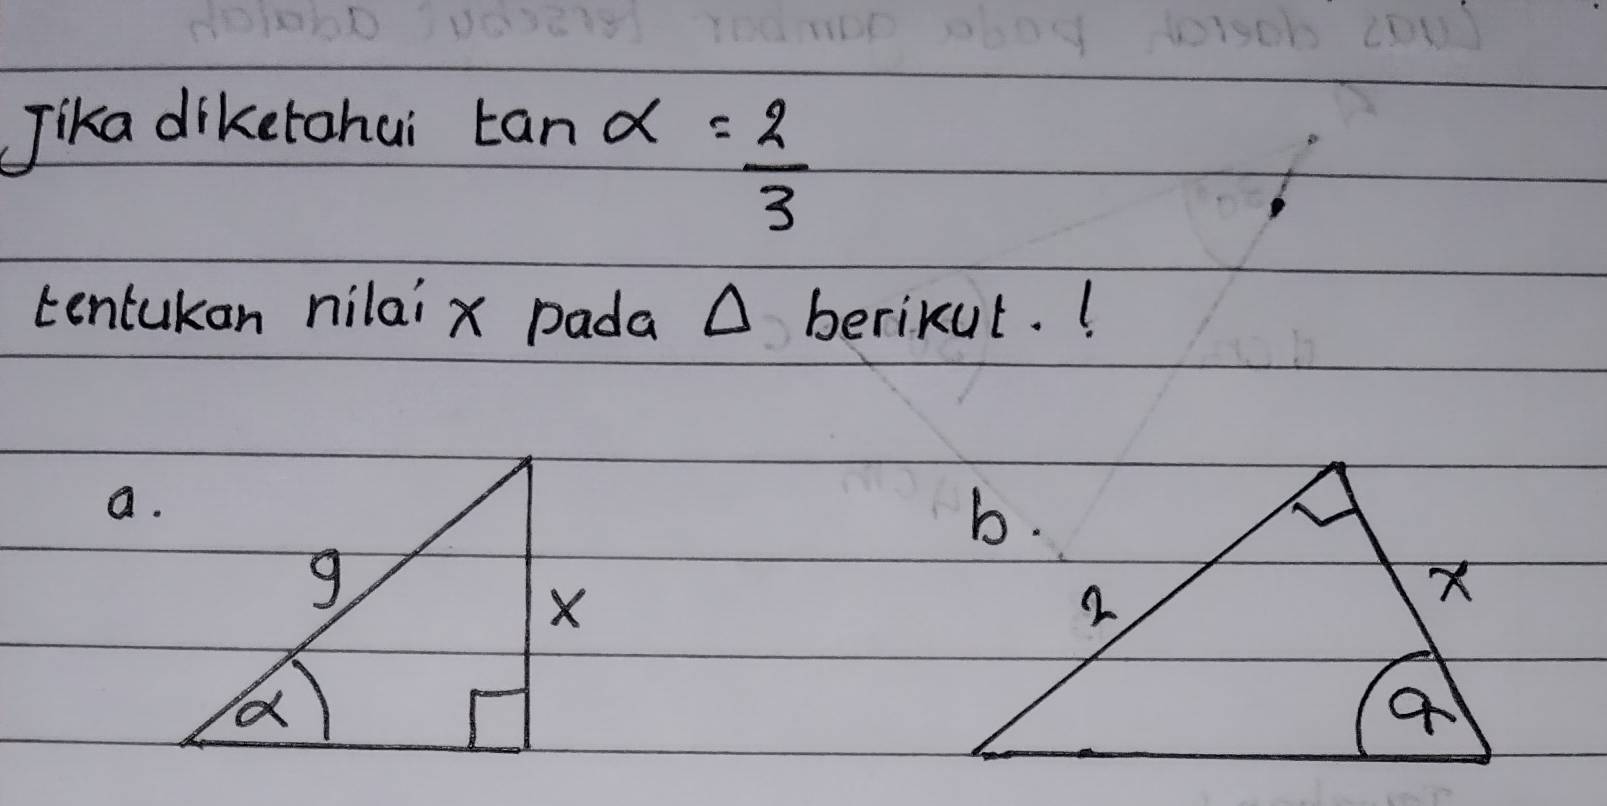 Jika diketahui tan α = 2/3
tentukan nilai x pada Δ berikut. !
a.
9
x
α
b.
2
x
α